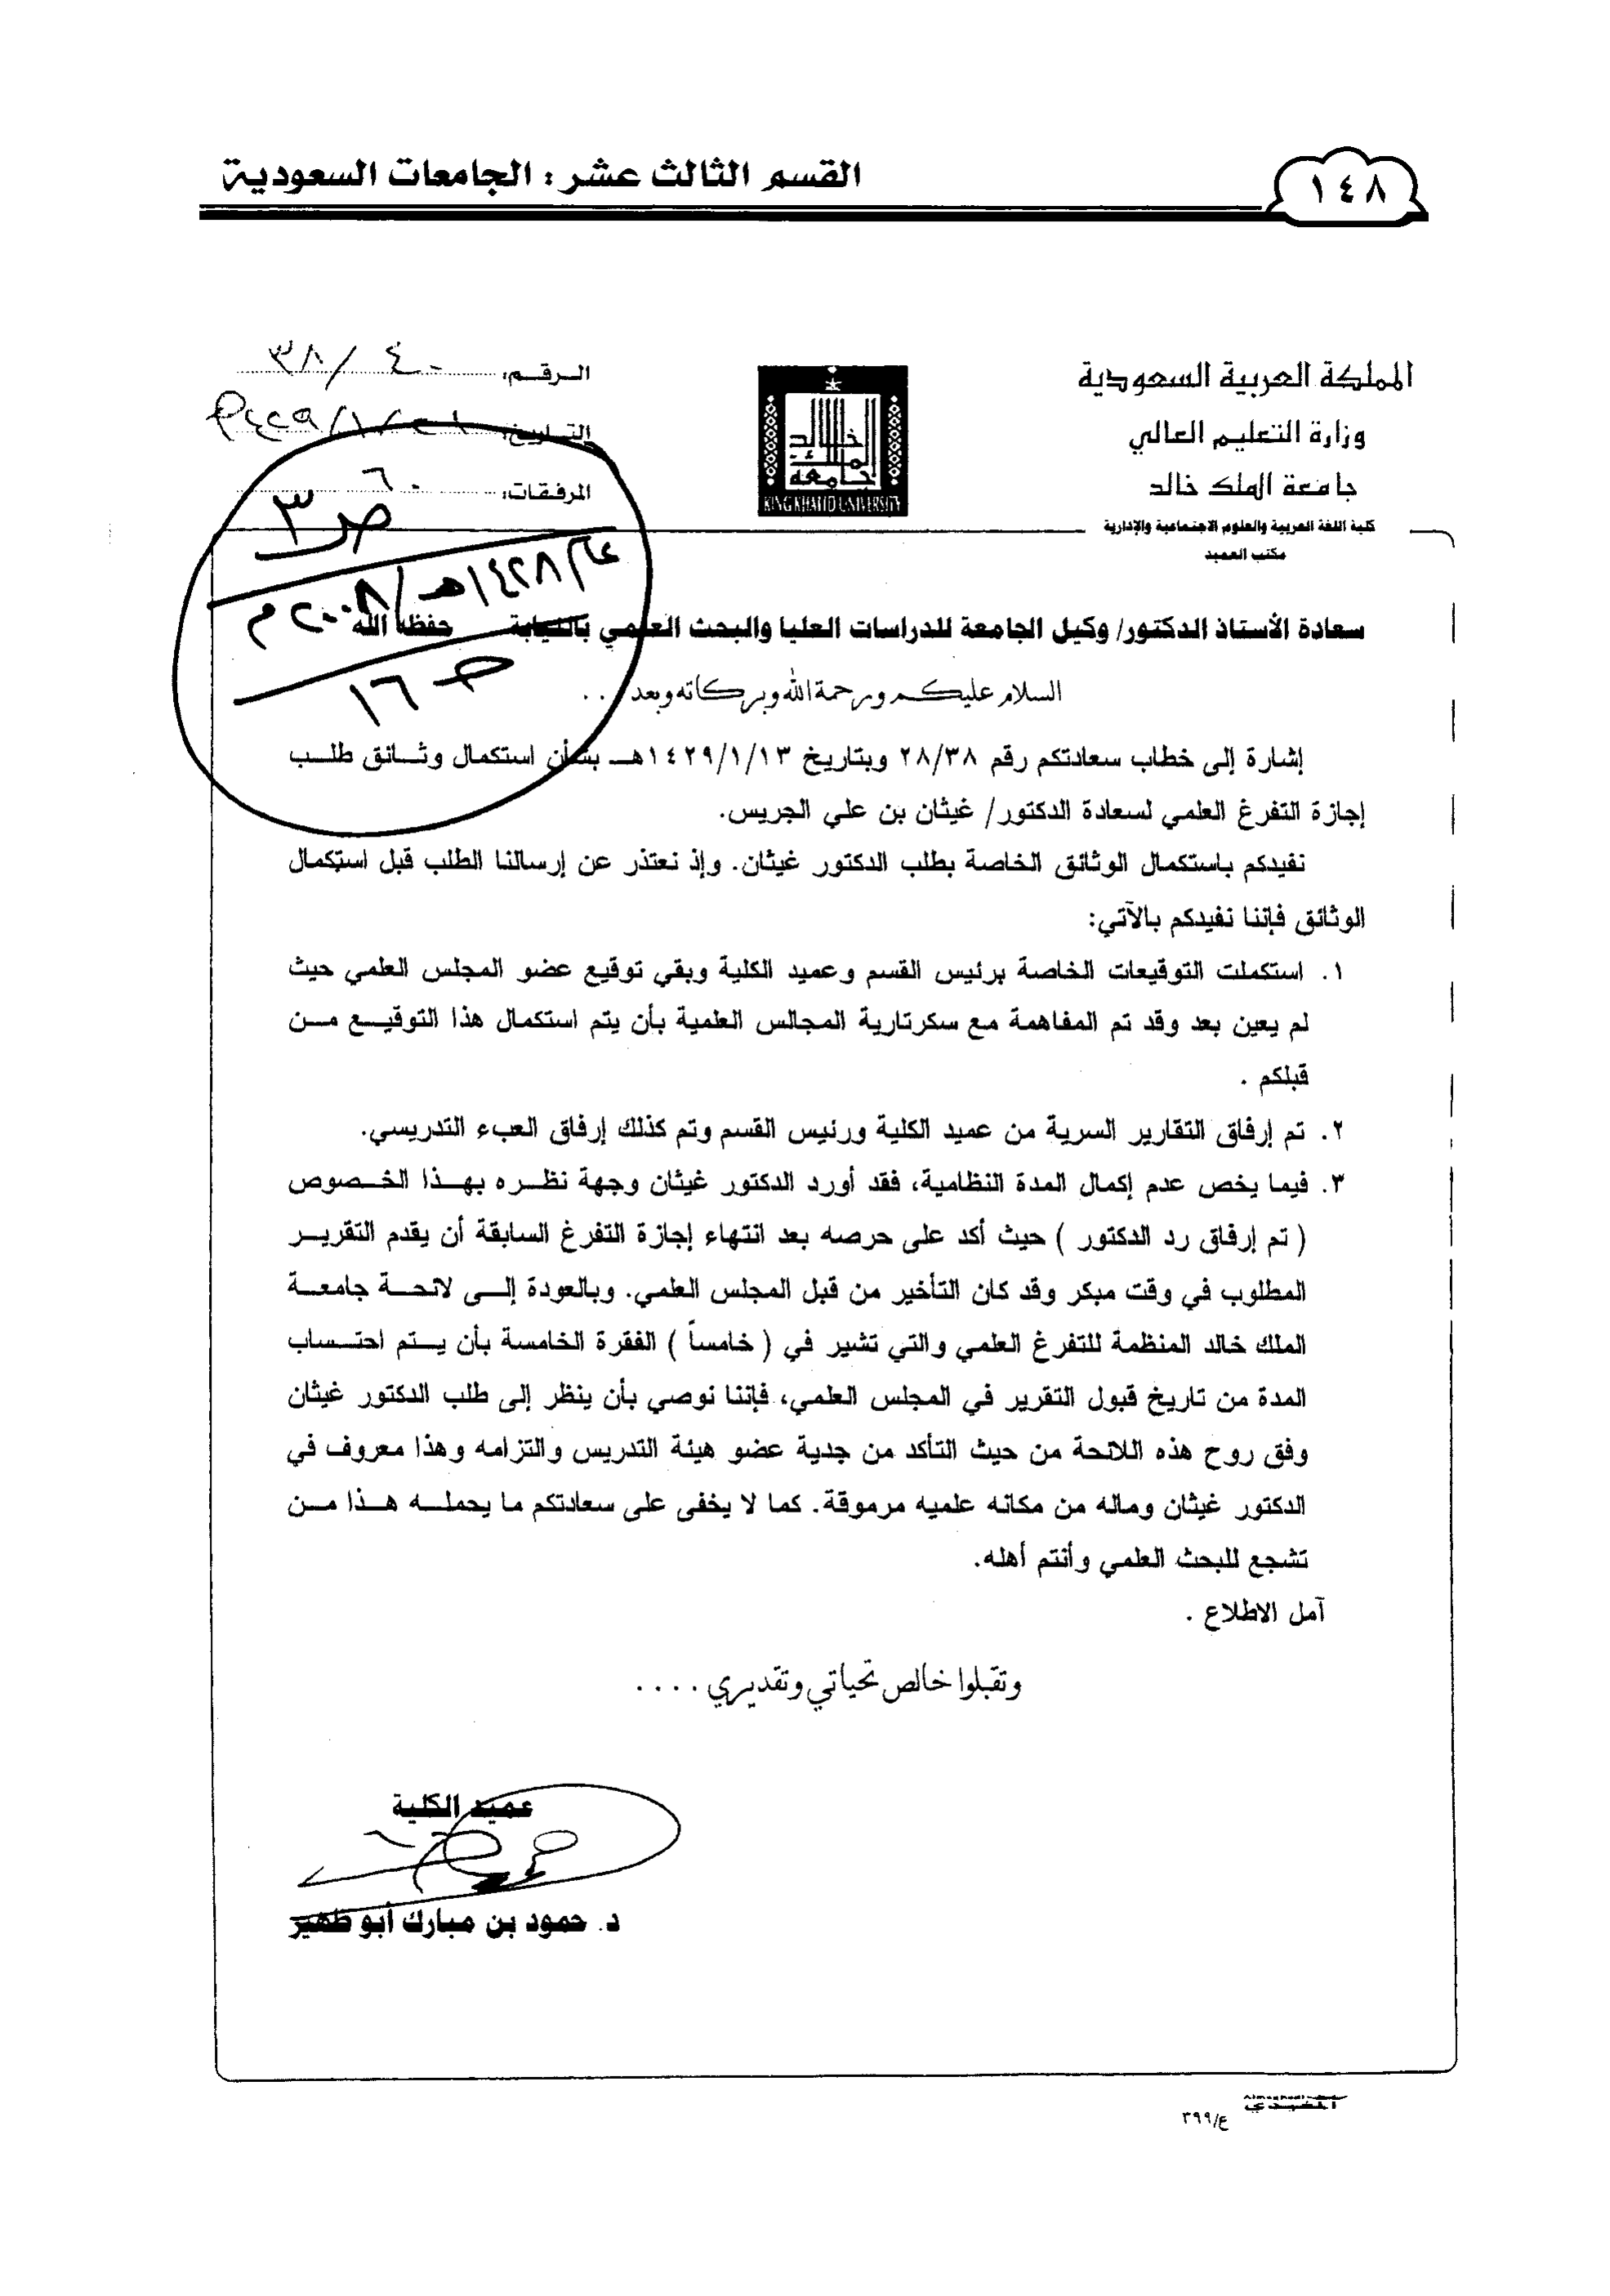 ١٤٨
القسم الثالث عشر: الجامعات السعودية
المملكة العربية السعودية
وزارة التعليم العالي
جامعة الملك خالد
كلية اللغة العربية والعلوم الاجتماعية والإدارية
مكتب العميد
جامعة الملك خالد
KING KHALID UNIVERSITY
الرقم: ٣٨/٤٠
التاريخ:
المرفقات: ٦
ص٣
١٤٢٨هـ/٢٠٠٨م
ح١٦
سعادة الأستاذ الدكتور/ وكيل الجامعة للدراسات العليا والبحث العلمي بالنيابة حفظه الله
السلام عليكم ورحمة الله وبركاته وبعد ...
إشارة إلى خطاب سعادتكم رقم ٢٨/٣٨ وبتاريخ ١٤٢٩/١/١٣هـ بشأن استكمال وثائق طلب
إجازة التفرغ العلمي لسعادة الدكتور/ غيثان بن علي الجريس.
نفيدكم باستكمال الوثائق الخاصة بطلب الدكتور غيثان. وإذ نعتذر عن إرسالنا الطلب قبل استكمال
الوثائق فإننا نفيدكم بالآتي:
١. استكملت التوقيعات الخاصة برئيس القسم وعميد الكلية وبقي توقيع عضو المجلس العلمي حيث
لم يعين بعد وقد تم المفاهمة مع سكرتارية المجالس العلمية بأن يتم استكمال هذا التوقيع من
قبلكم .
٢. تم إرفاق التقارير السرية من عميد الكلية ورئيس القسم وتم كذلك إرفاق العبء التدريسي.
٣. فيما يخص عدم إكمال المدة النظامية، فقد أورد الدكتور غيثان وجهة نظره بهذا الخصوص
( تم إرفاق رد الدكتور ) حيث أكد على حرصه بعد انتهاء إجازة التفرغ السابقة أن يقدم التقرير
المطلوب في وقت مبكر وقد كان التأخير من قبل المجلس العلمي. وبالعودة إلى لائحة جامعة
الملك خالد المنظمة للتفرغ العلمي والتي تشير في ( خامساً ) الفقرة الخامسة بأن يتم احتساب
المدة من تاريخ قبول التقرير في المجلس العلمي، فإننا نوصي بأن ينظر إلى طلب الدكتور غيثان
وفق روح هذه اللائحة من حيث التأكد من جدية عضو هيئة التدريس والتزامه وهذا معروف في
الدكتور غيثان وماله من مكانه علميه مرموقة. كما لا يخفى على سعادتكم ما يحمله هذا من
تشجع للبحث العلمي وأنتم أهله.
آمل الاطلاع .
وتقبلوا خالص تحياتي وتقديري ....
عميد الكلية
د. حمود بن مبارك أبو ظهير
ع/٣٩٩